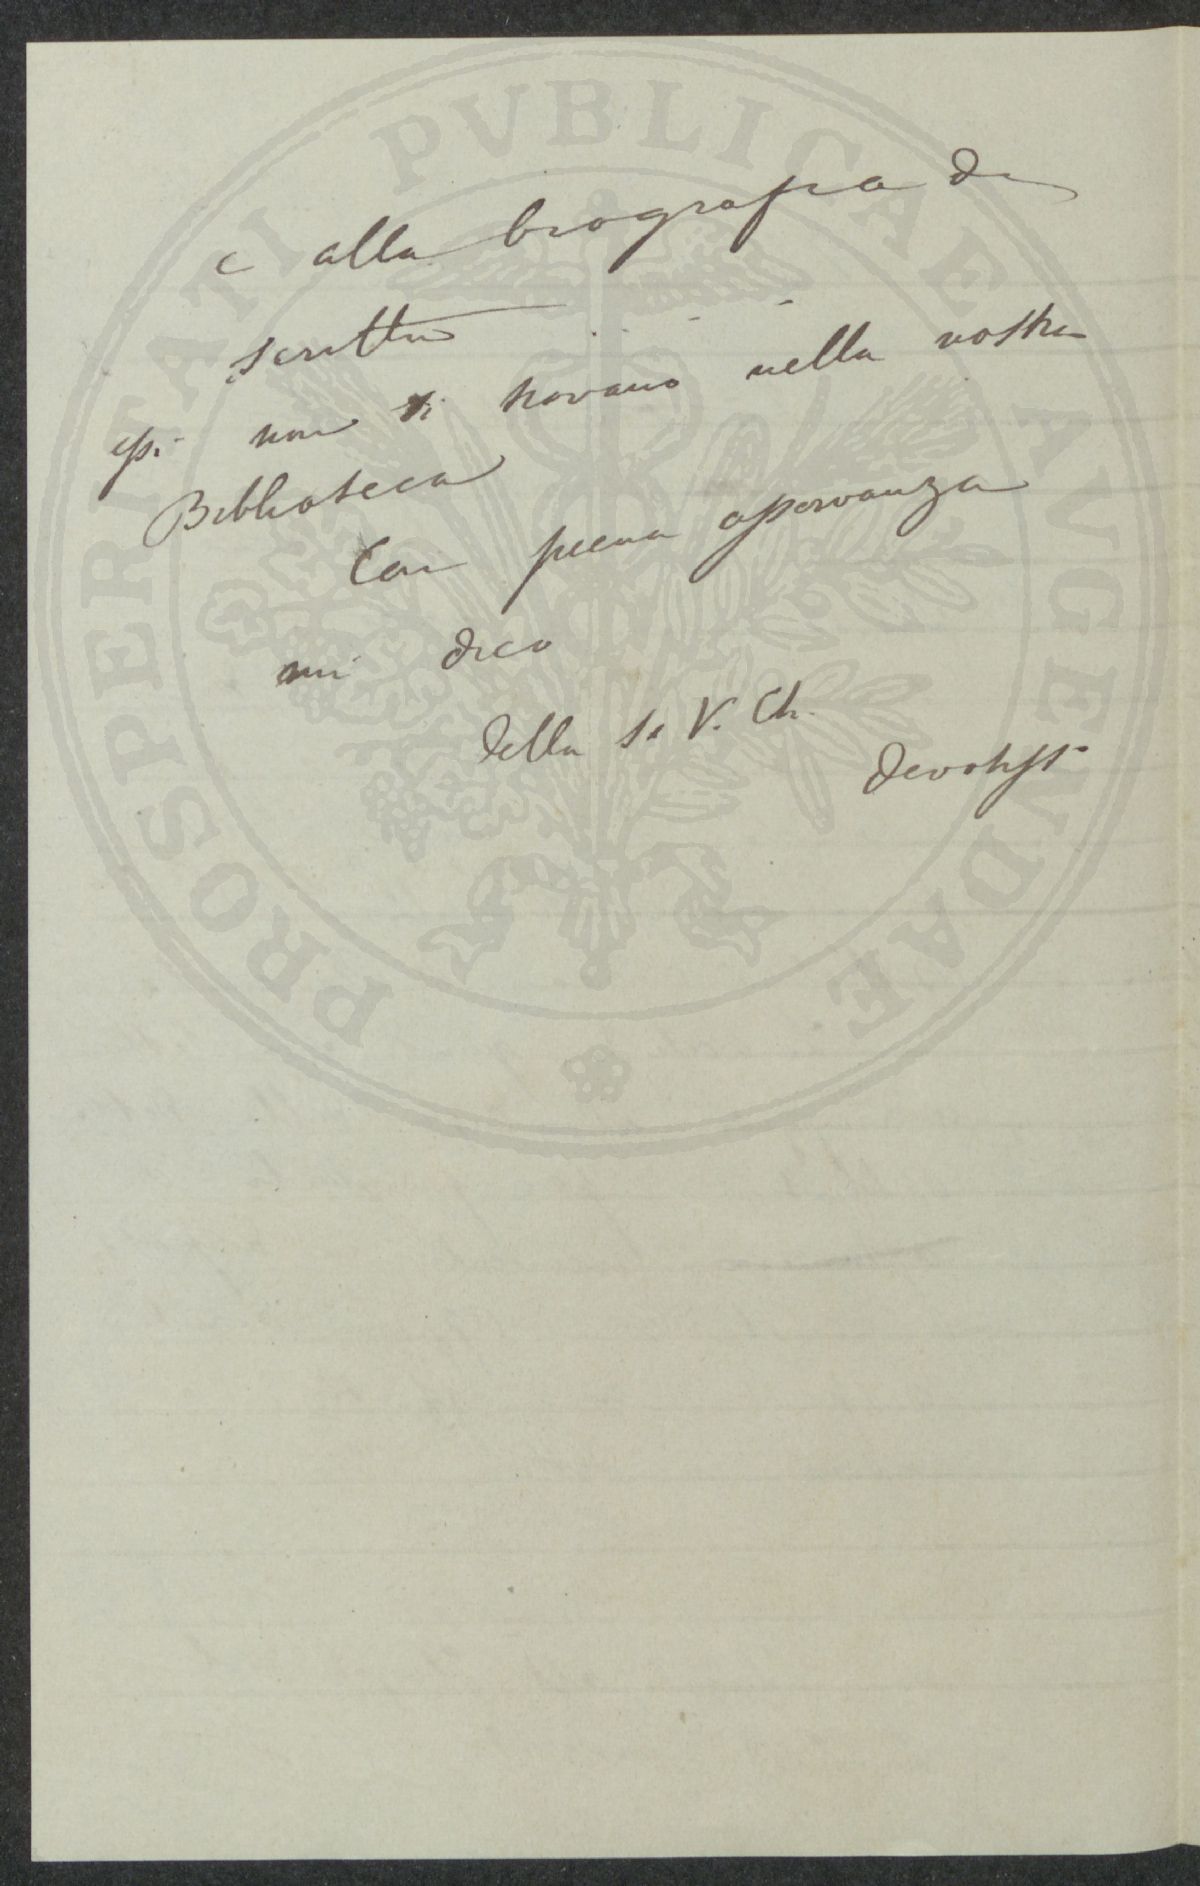 e alla biografia di
scritta
essi non si trovano nella vostra
Biblioteca
Con piena osservanza
mi dico
della S. V. Ch.
devotiss
PROSPERITATI PVBLICAE AVGENDAE